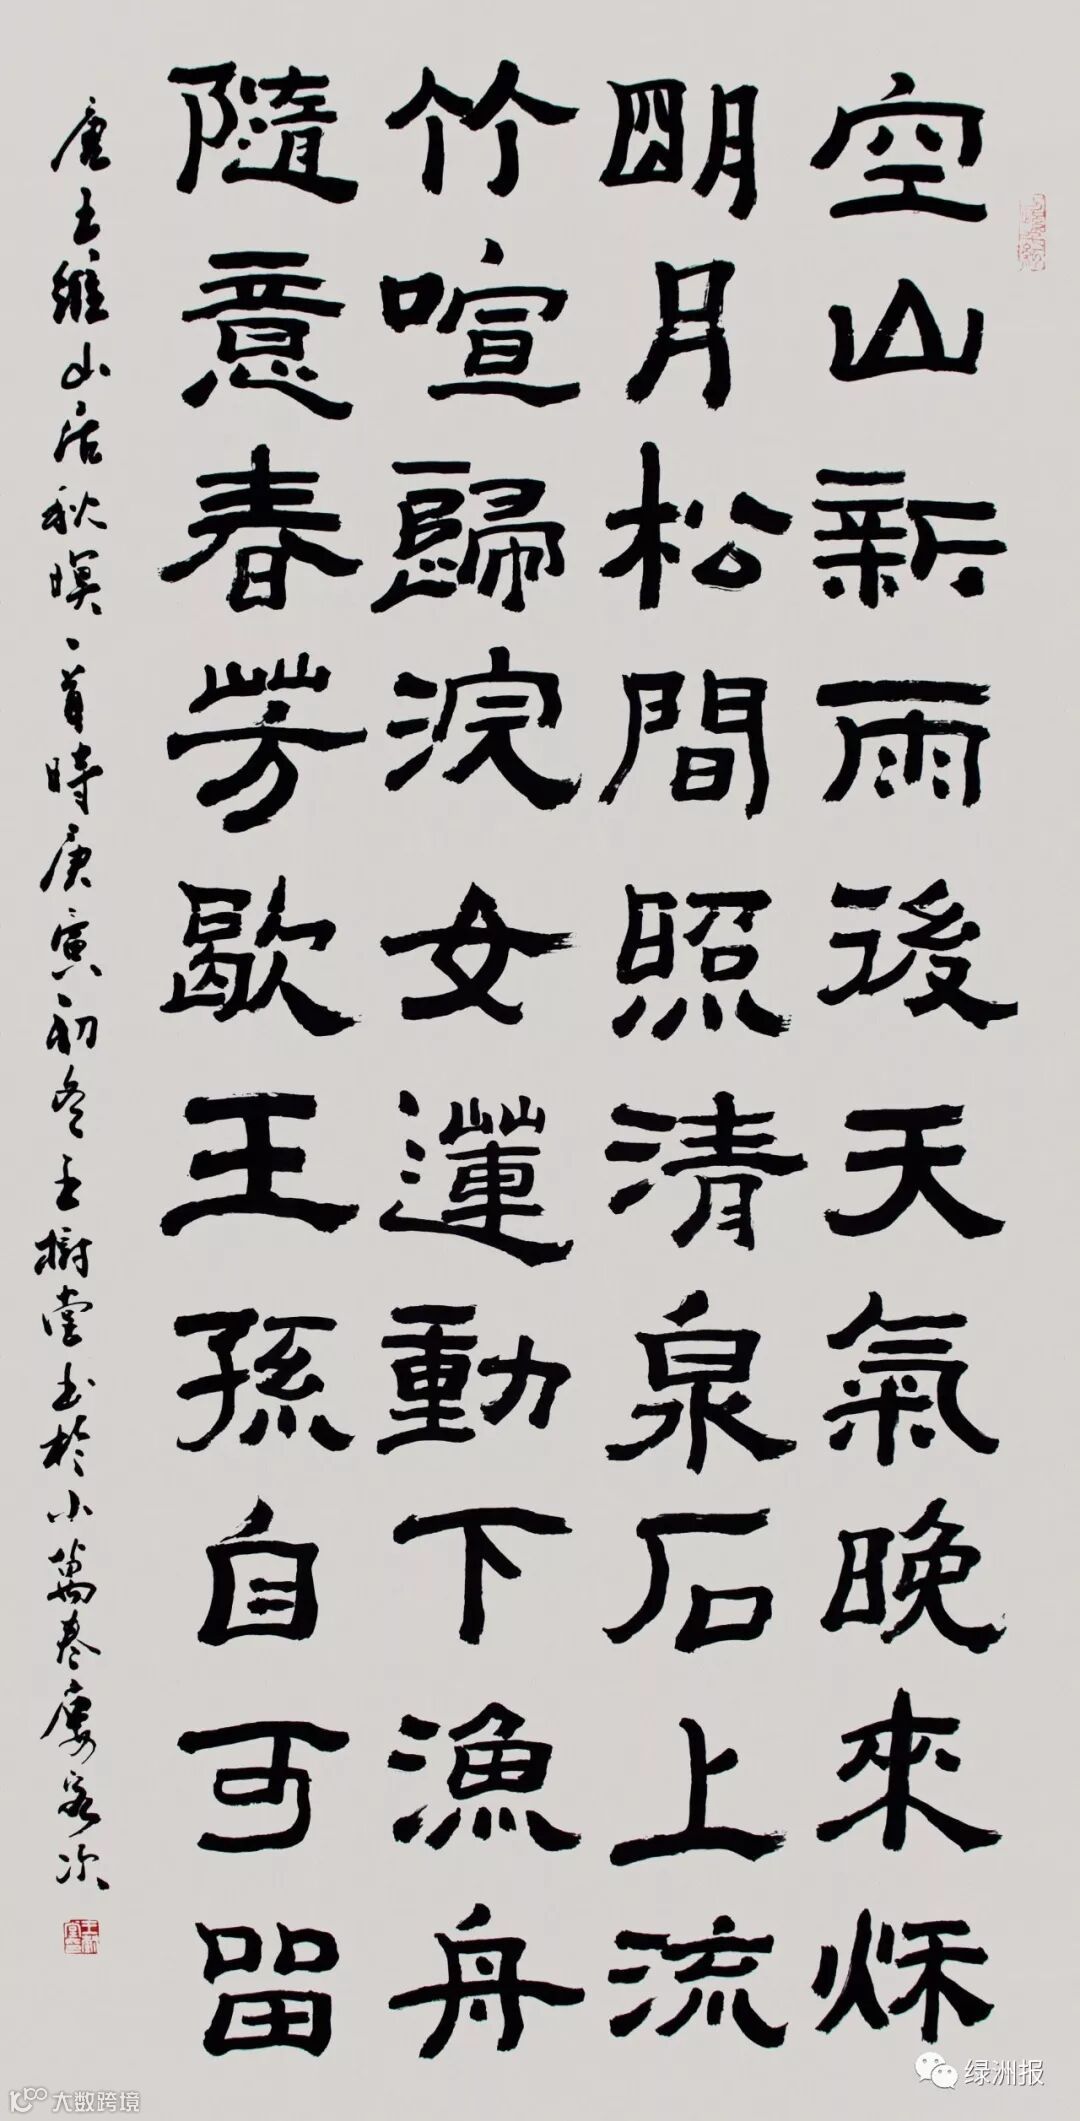 空山新雨後天氣晚來秌
朙月松間照清泉石上流
竹喧歸浣女蓮動下漁舟
隨意春芳歇王孫自可留
唐王維山居秋暝一首時庚寅初冬王樹堂書於小萬卷廔客次
绿洲报
大数跨境